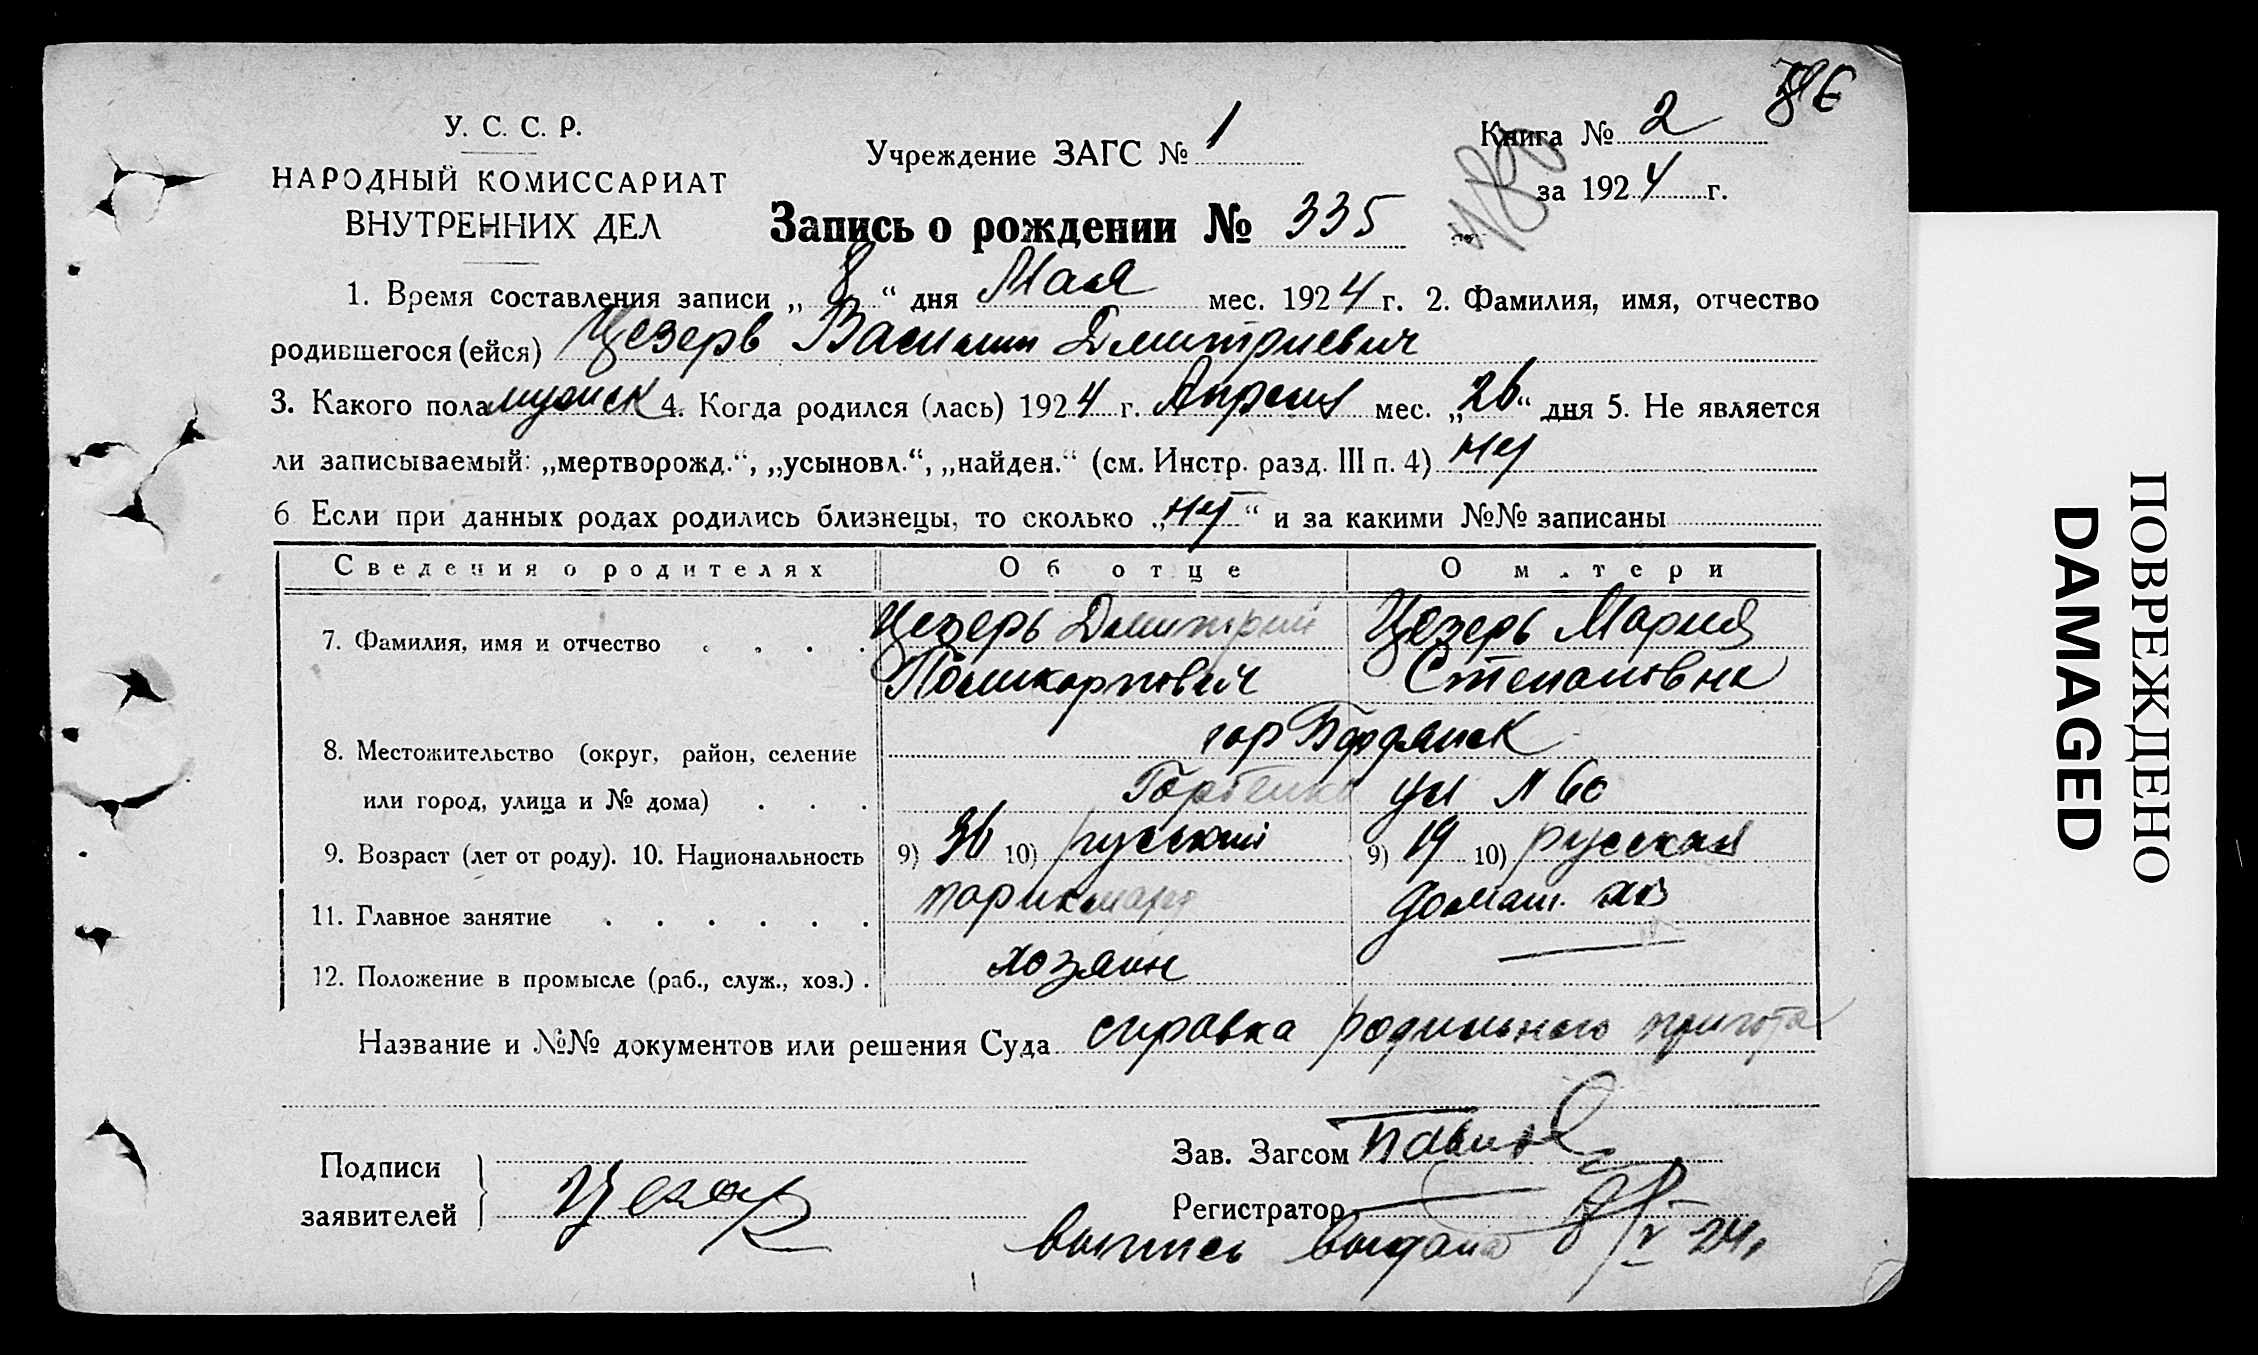 У. С. С. Р.
НАРОДНЫЙ КОМИССАРИАТ
ВНУТРЕННИХ ДЕЛ
Учреждение ЗАГС № 1
Книга № 2
за 1924 г.
Запись о рождении № 335
1. Время составления записи „8“ дня Мая мес. 1924 г. 2. Фамилия, имя, отчество
родившегося (ейся) Цезерь Василий Дмитриевич
3. Какого пола мужск 4. Когда родился (лась) 1924 г. Апреля мес. „26“ дня 5. Не является
ли записываемый: „мертворожд.“, „усыновл.“, „найден.“ (см. Инстр. разд. III п. 4) нет
6 Если при данных родах родились близнецы, то сколько „нет“ и за какими №№ записаны
Сведения о родителях Об отце О матери
7. Фамилия, имя и отчество Цезерь Дмитрий Цезерь Мария
Поликарпович Степановна
гор Бердянск
8. Местожительство (округ, район, селение
или город, улица и № дома) Горбенко ул № 60
9. Возраст (лет от роду). 10. Национальность 9) 36 10) русский 9) 19 10) русская
11. Главное занятие парикмахер домаш. хоз
12. Положение в промысле (раб., служ., хоз.) хозяин
Название и №№ документов или решения Суда справка родильного приюта
Подписи
заявителей Цезар
Зав. Загсом
Регистратор
выпись выдана 8/V 24 г.
ПОВРЕЖДЕНО
DAMAGED